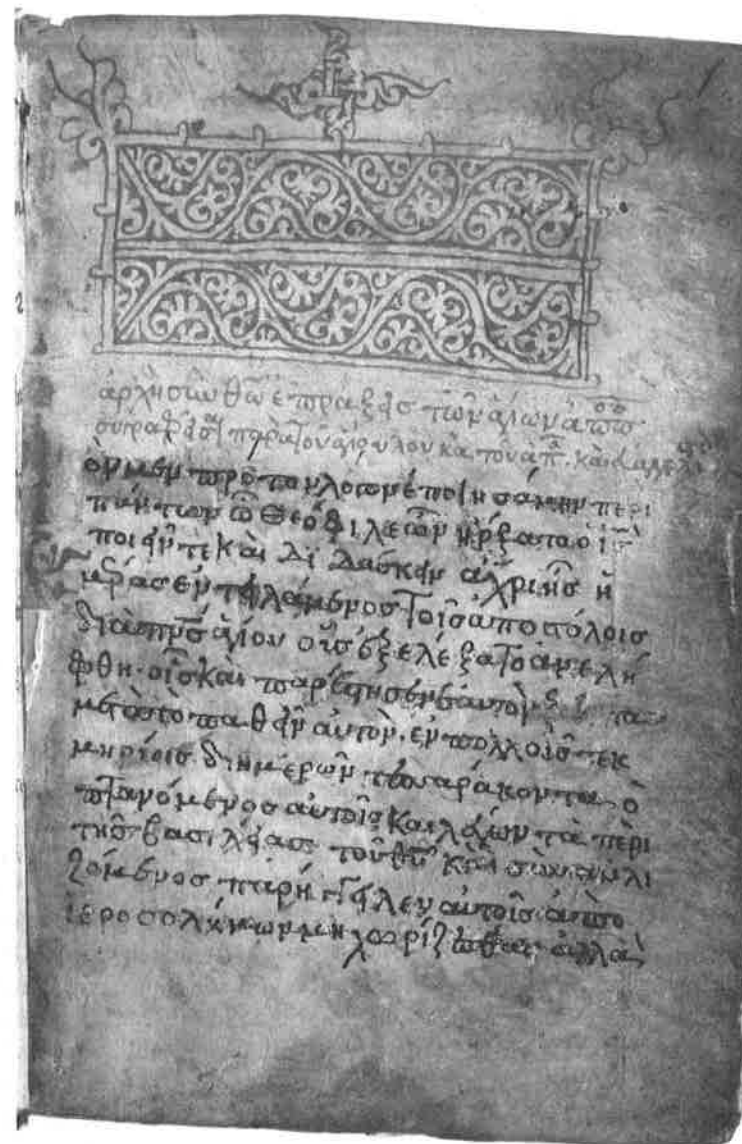 ἀρχὴ σὺν θῶ πράξεις τῶν ἁγίων ἀπο
παρὰ τοῦ λουκᾶ τοῦ ἀπ. καὶ
ὸν μὲν πρῶτον λόγον ἐποιησάμην περι
πάντων ὦ θεόφιλε ὧν ἤρξατο ὁ ις
ποιεῖν τε καὶ διδάσκειν ἄχρι ἧς ἡ
μέρας ἐντειλάμενος τοῖς ἀποστόλοις
διὰ πνς ἁγίου οὓς ἐξελέξατο ἀνελή
φθη. οἷς καὶ παρέστησεν ἑαυτὸν
μετὰ τὸ παθεῖν αὐτὸν. ἐν πολλοῖς τεκ
μηρίοις δι ἡμερῶν τεσσαράκοντα ὀ
πτανόμενος αὐτοῖς καὶ λέγων τὰ περὶ
τῆς βασιλείας τοῦ θυ καὶ συναυλι
ζόμενος παρήγγειλεν αὐτοῖς ἀπὸ
ἱεροσολύμων μὴ χωρίζεσθαι ἀλλὰ